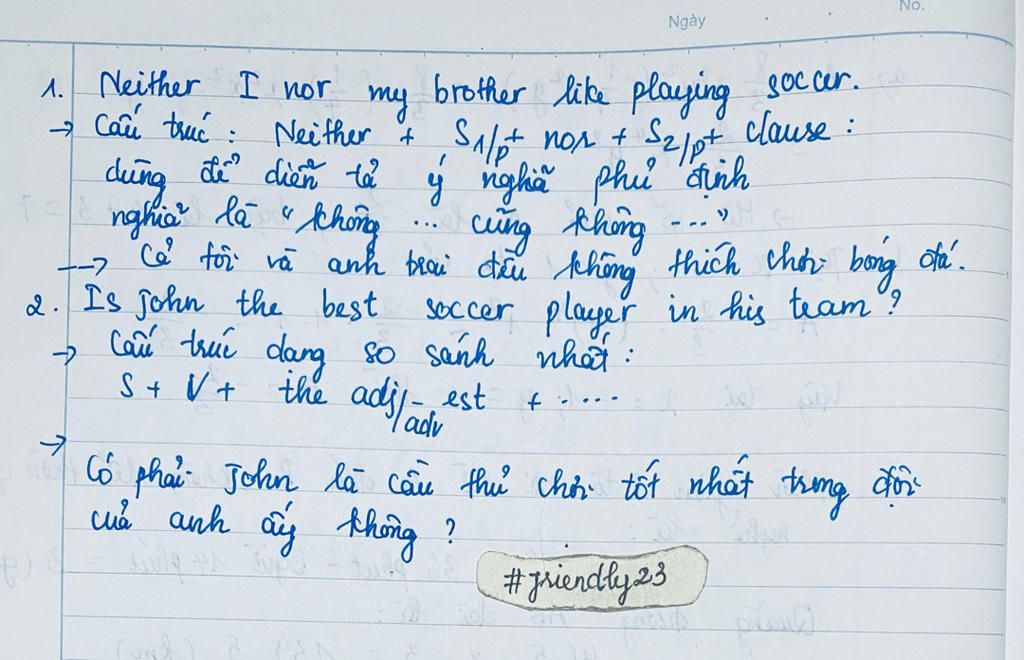 Ngày
No.
1. Neither I nor my brother like playing soccer.
→ Cấu trúc : Neither + S1/P + nor + S2/P + clause :
dùng để diễn tả ý nghĩa phủ định
nghĩa là "không ... cũng không ..."
→ Cả tôi và anh trai đều không thích chơi bóng đá.
2. Is John the best soccer player in his team ?
→ Cấu trúc dạng so sánh nhất :
S + V + the adj/adv - est + ....
→
Có phải John là cầu thủ chơi tốt nhất trong đội
của anh ấy không ?
#friendly23